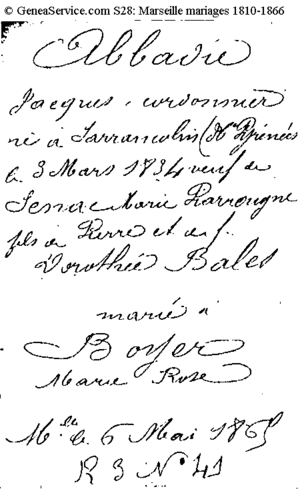 © GeneaService.com S28: Marseille mariages 1810-1866
Abbadie
Jacques, cordonnier
né à Sarrancolin (Htes Pyrénées
le 3 Mars 1834 veuf de
Marie
fils de Pierre et de f.
Dorothée Bales
marié à
Boyer
Marie Rose
Mlle le 6 Mai 1865
R 3 N° 41